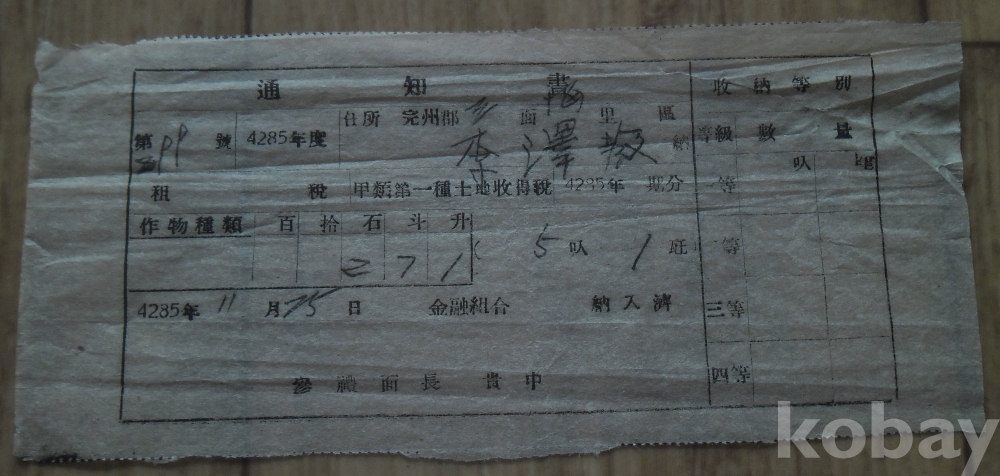 通知書
收納等別
住所 完州郡 面 里 區
第 號 4285年度
李澤 納
等級 數量
租稅 甲類第一種土地收得稅 4285年 期分
一等 叺 kg
作物種類 百 拾 石 斗 升
2 7 1 ( 5 叺 1 瓩
二等
4285年 11月 25日 金融組合 納入濟
三等
參禮面長 貴中
四等
kobay